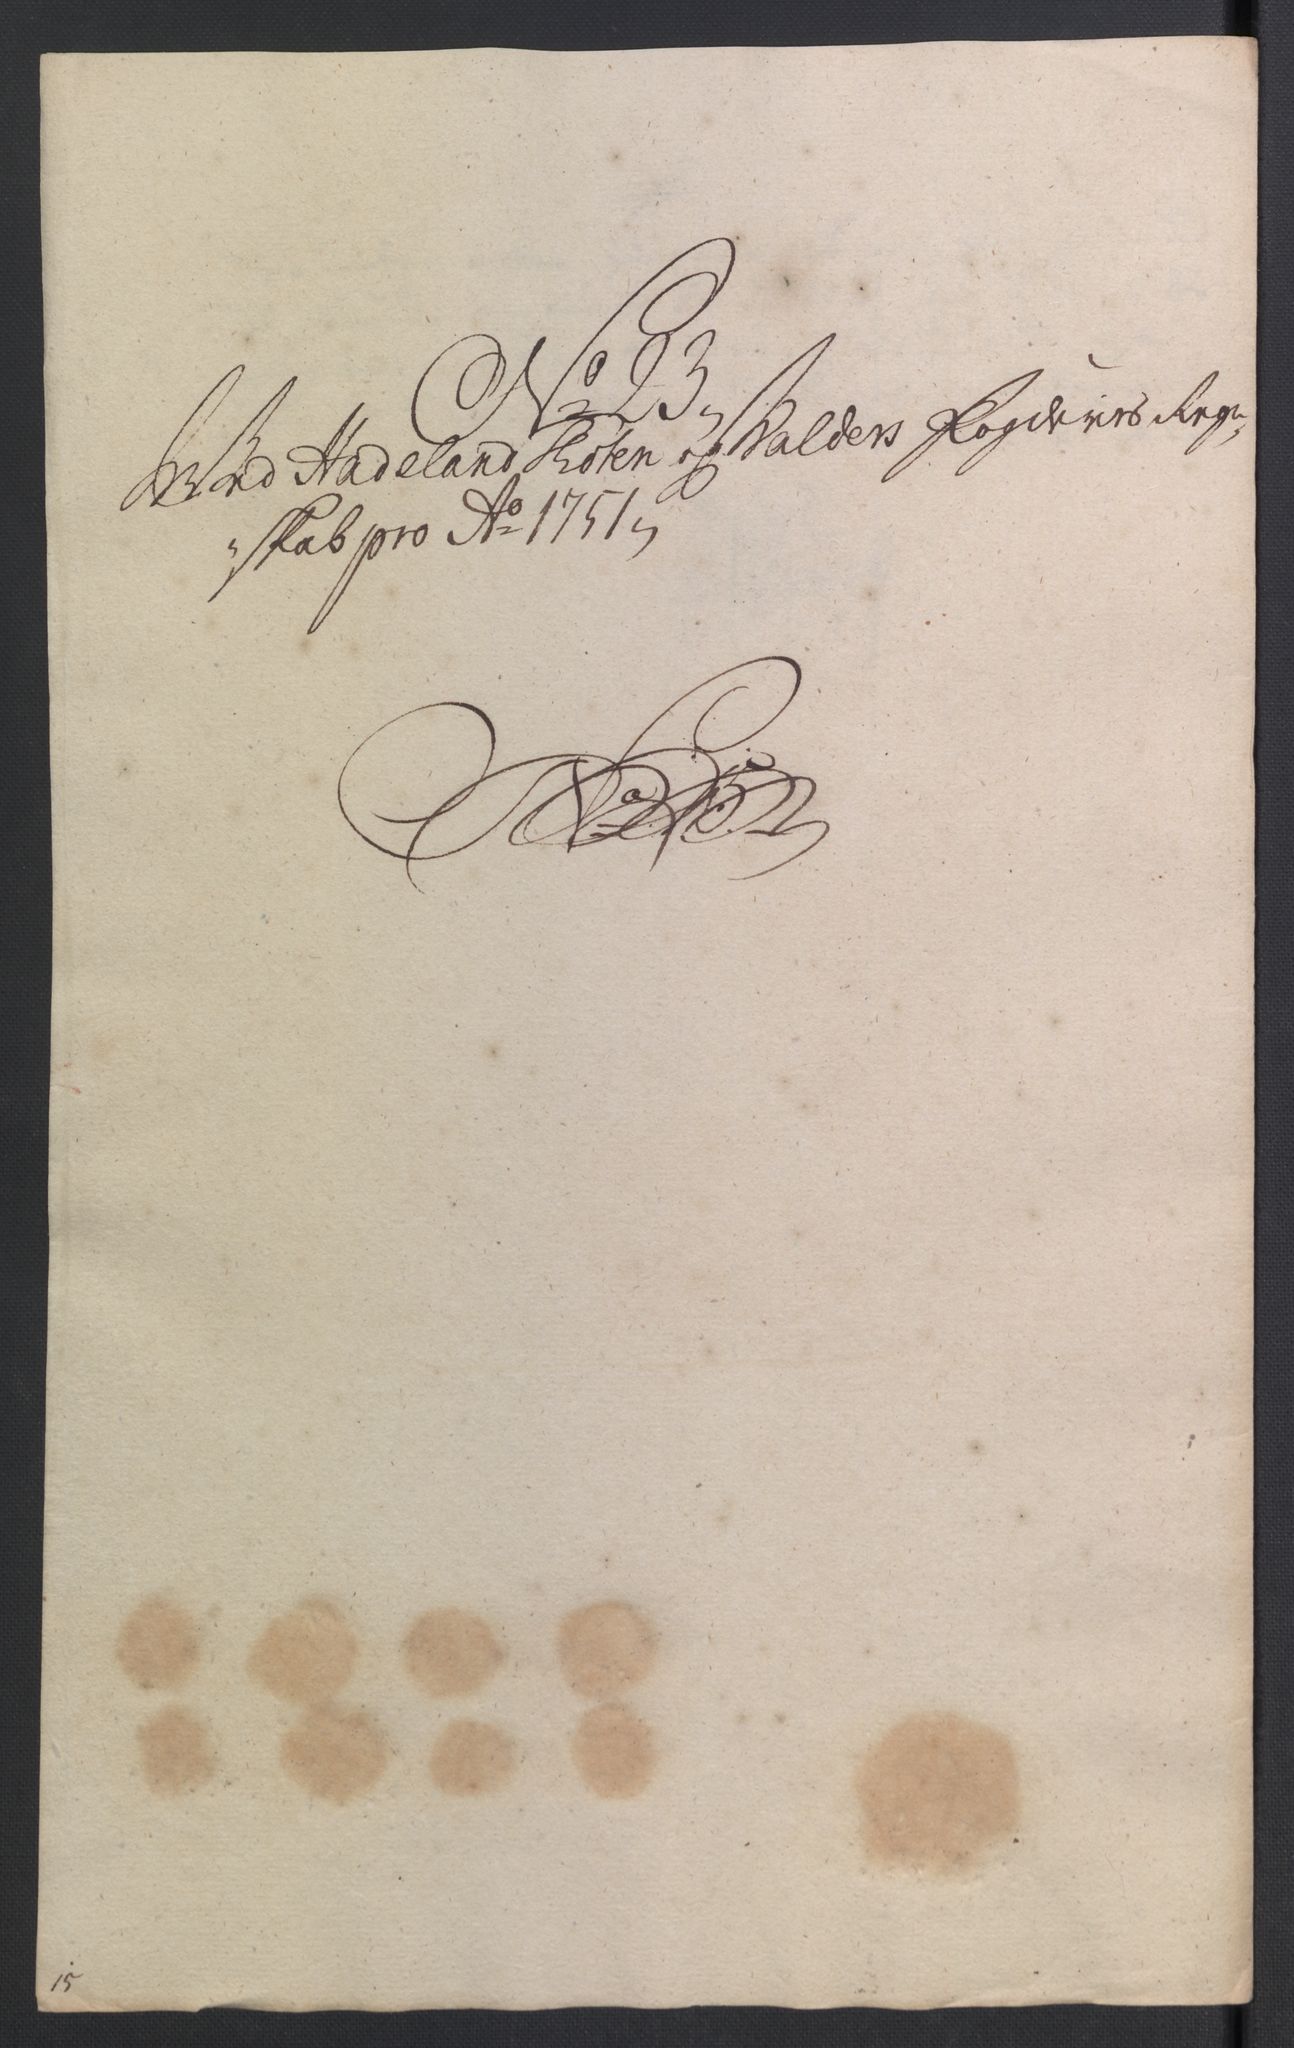 No 23,
Ved Hadeland Toten og Valders Fogderies Regn„
„skab pro Ao 1751,
No
15